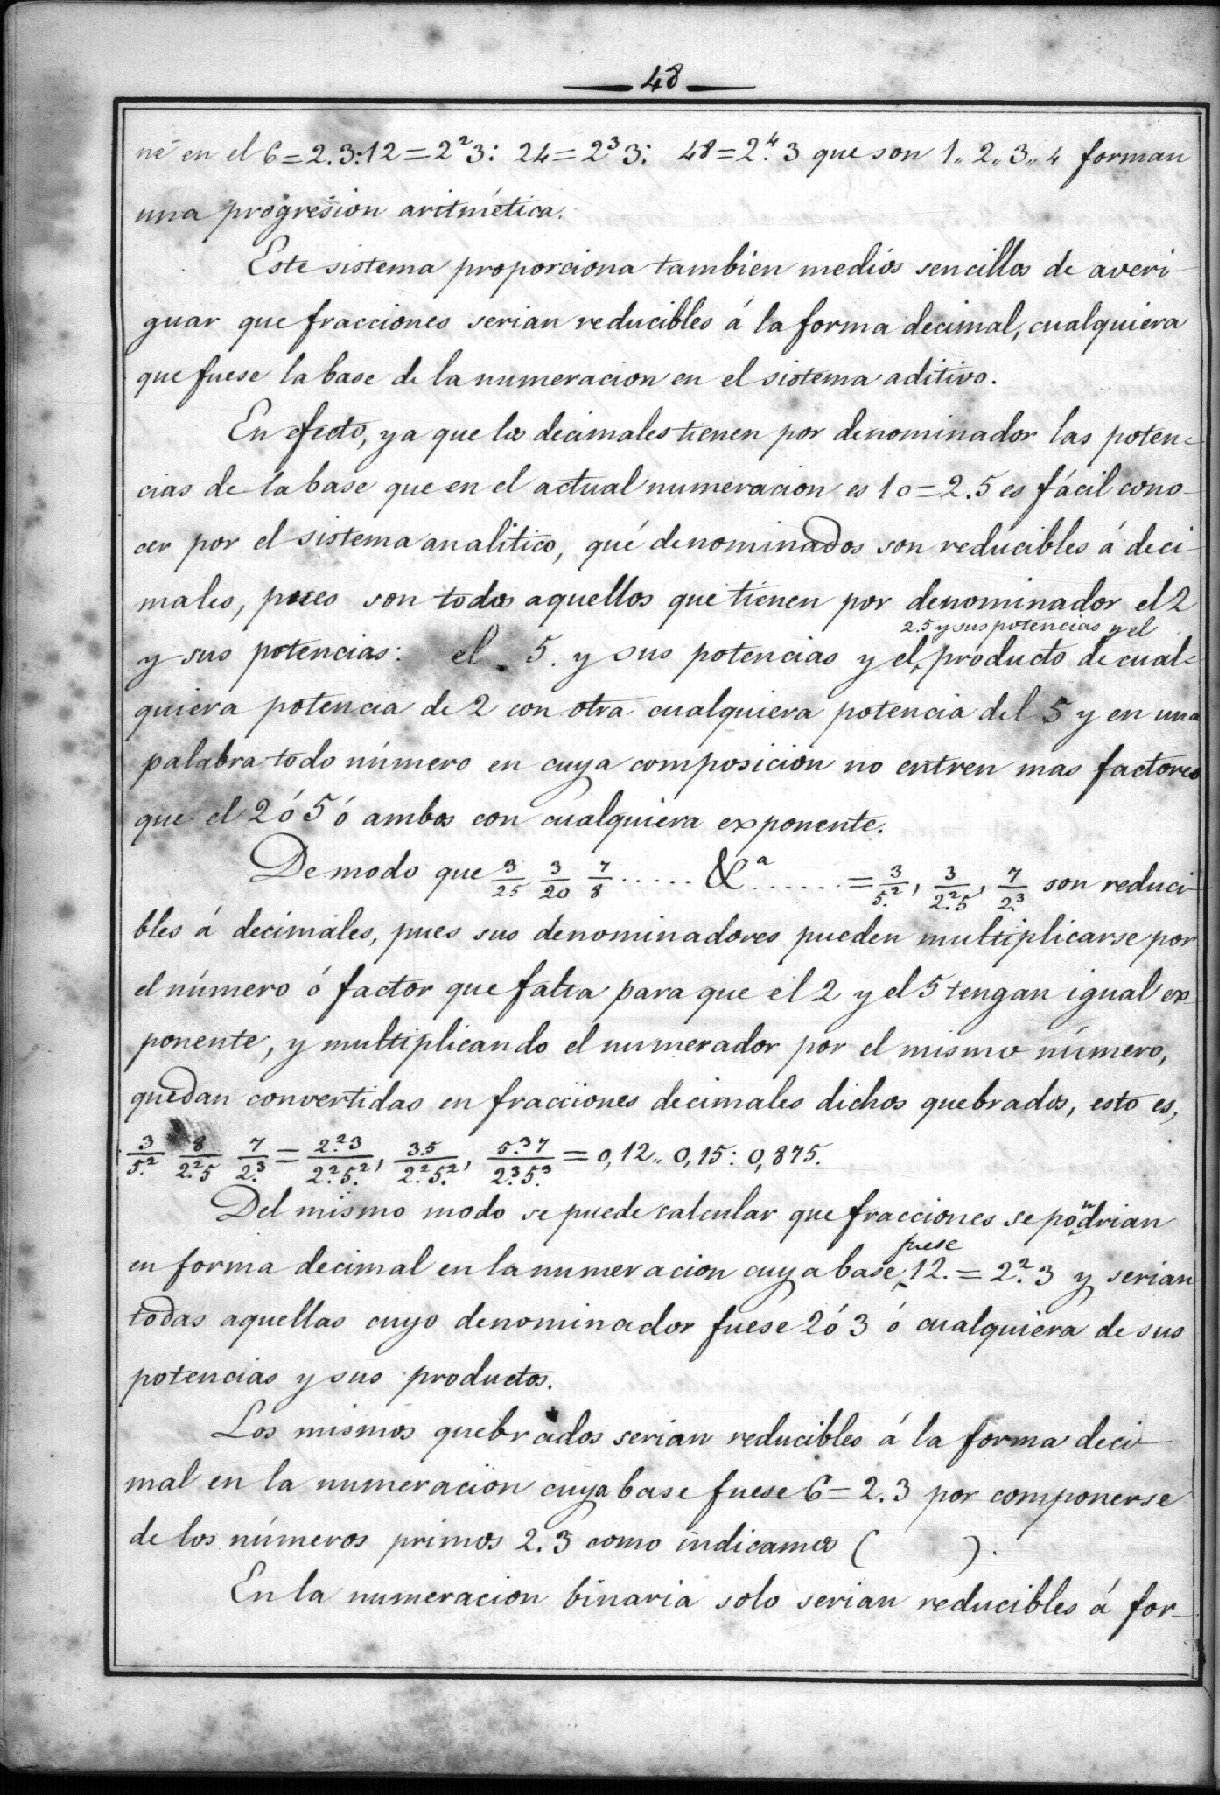 48
ne en el 6=2.3:12=2²3: 24=2³3: 48=2.⁴3 que son 1.. 2.. 3.. 4 forman
una progresion aritmética.
Este sistema proporciona tambien medios sencillos de averi-
guar que fracciones serian reducibles á la forma decimal, cualquiera
que fuese la base de la numeracion en el sistema aditivo.
En efecto, ya que los decimales tienen por denominador las poten-
cias de la base que en el actual numeracion es 10=2.5 es fácil cono-
cer por el sistema analitico, qué denominados son reducibles á deci-
males, pues son todos aquellos que tienen por denominador el 2
2.5 y sus potencias y el
y sus potencias: el 5. y sus potencias y el producto de cual-
quiera potencia de 2 con otra cualquiera potencia del 5 y en una
palabra todo número en cuya composicion no entren mas factores
que el 2 ó 5 ó ambos con cualquiera exponente.
De modo que 3/25 3/20 7/8 ...... &ª ...... = 3/5.², 3/2.²5, 7/2.³ son reduci-
bles á decimales, pues sus denominadores pueden multiplicarse por
el número ó factor que falta para que el 2 y el 5 tengan igual ex-
ponente, y multiplicando el numerador por el mismo número,
quedan convertidas en fracciones decimales dichos quebrados, esto es,
3/5.² 8/2.²5 7/2.³ = 2.²3/2.²5.², 3.5/2.²5.², 5.³7/2.³5.³ = 0,12.. 0,15: 0,875.
Del mismo modo se puede calcular que fracciones se pondrian
fuese
en forma decimal en la numeracion cuya base 12. = 2.² 3 y serian
todas aquellas cuyo denominador fuese 2 ó 3 ó cualquiera de sus
potencias y sus productos.
Los mismos quebrados serian reducibles á la forma deci-
mal en la numeracion cuya base fuese 6=2.3 por componerse
de los números primos 2.3 como indicamos ( ).
En la numeracion binaria solo serian reducibles á for-